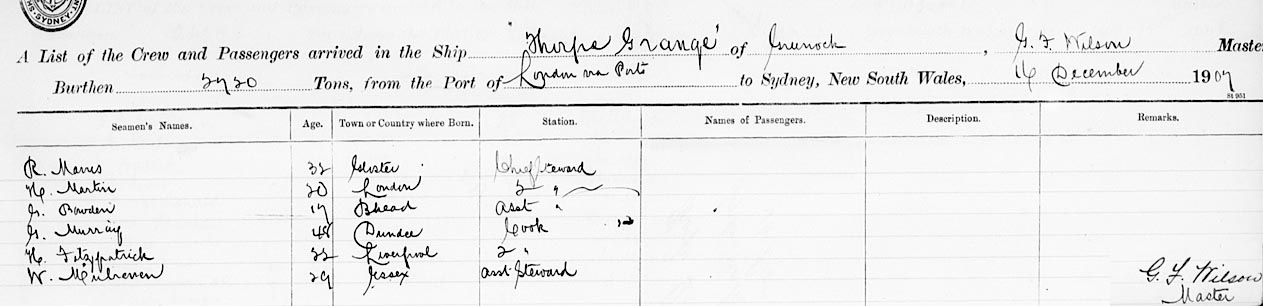 SYDNEY
A List of the Crew and Passengers arrived in the Ship "Thorpe Grange" of Greenock, G. F. Wilson Master
Burthen 2920 Tons, from the Port of London via Ports to Sydney, New South Wales, 14 December 1907
St 951
Seamen's Names. Age. Town or Country where Born. Station. Names of Passengers. Description. Remarks.
R. 32 Gloster Chief Steward
H. Martin 20 London 2 "
G. Bowden 17 Bhead asst "
G. Murray 48 Dundee Cook
H. Fitzpatrick 22 Liverpool 2 "
W. 29 Essex asst Steward
G. F. Wilson
Master